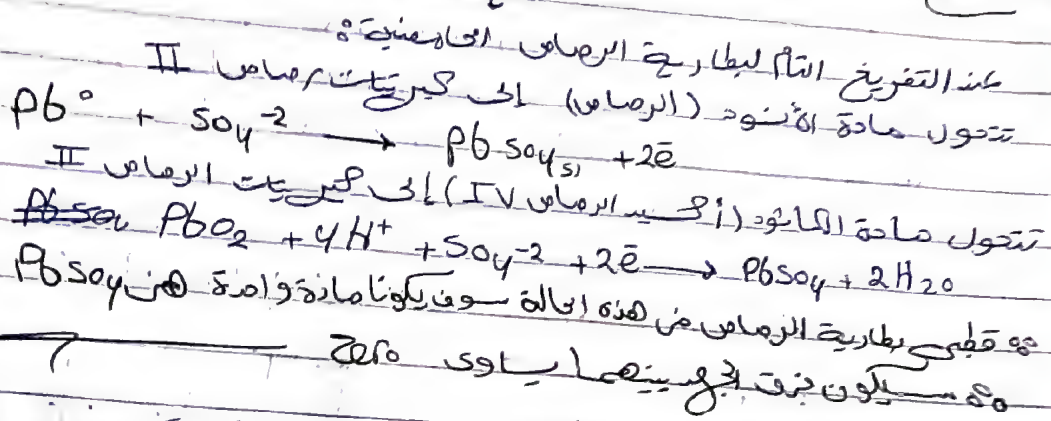 عند التفريغ التام لبطارية الرصاص الحامضية :
تتحول مادة الأنود (الرصاص) إلى كبريتات رصاص II
Pb° + SO4⁻² ⟶ PbSO4(s) + 2ē
تتحول مادة الكاثود (أكسيد الرصاص IV) إلى كبريتات الرصاص II
PbO2 + 4H⁺ + SO4⁻² + 2ē ⟶ PbSO4 + 2H2O
∴ قطبى بطارية الرصاص فى هذه الحالة سوف يكونا مادة واحدة هى PbSO4
∴ سيكون فرق الجهد بينهما يساوى Zero